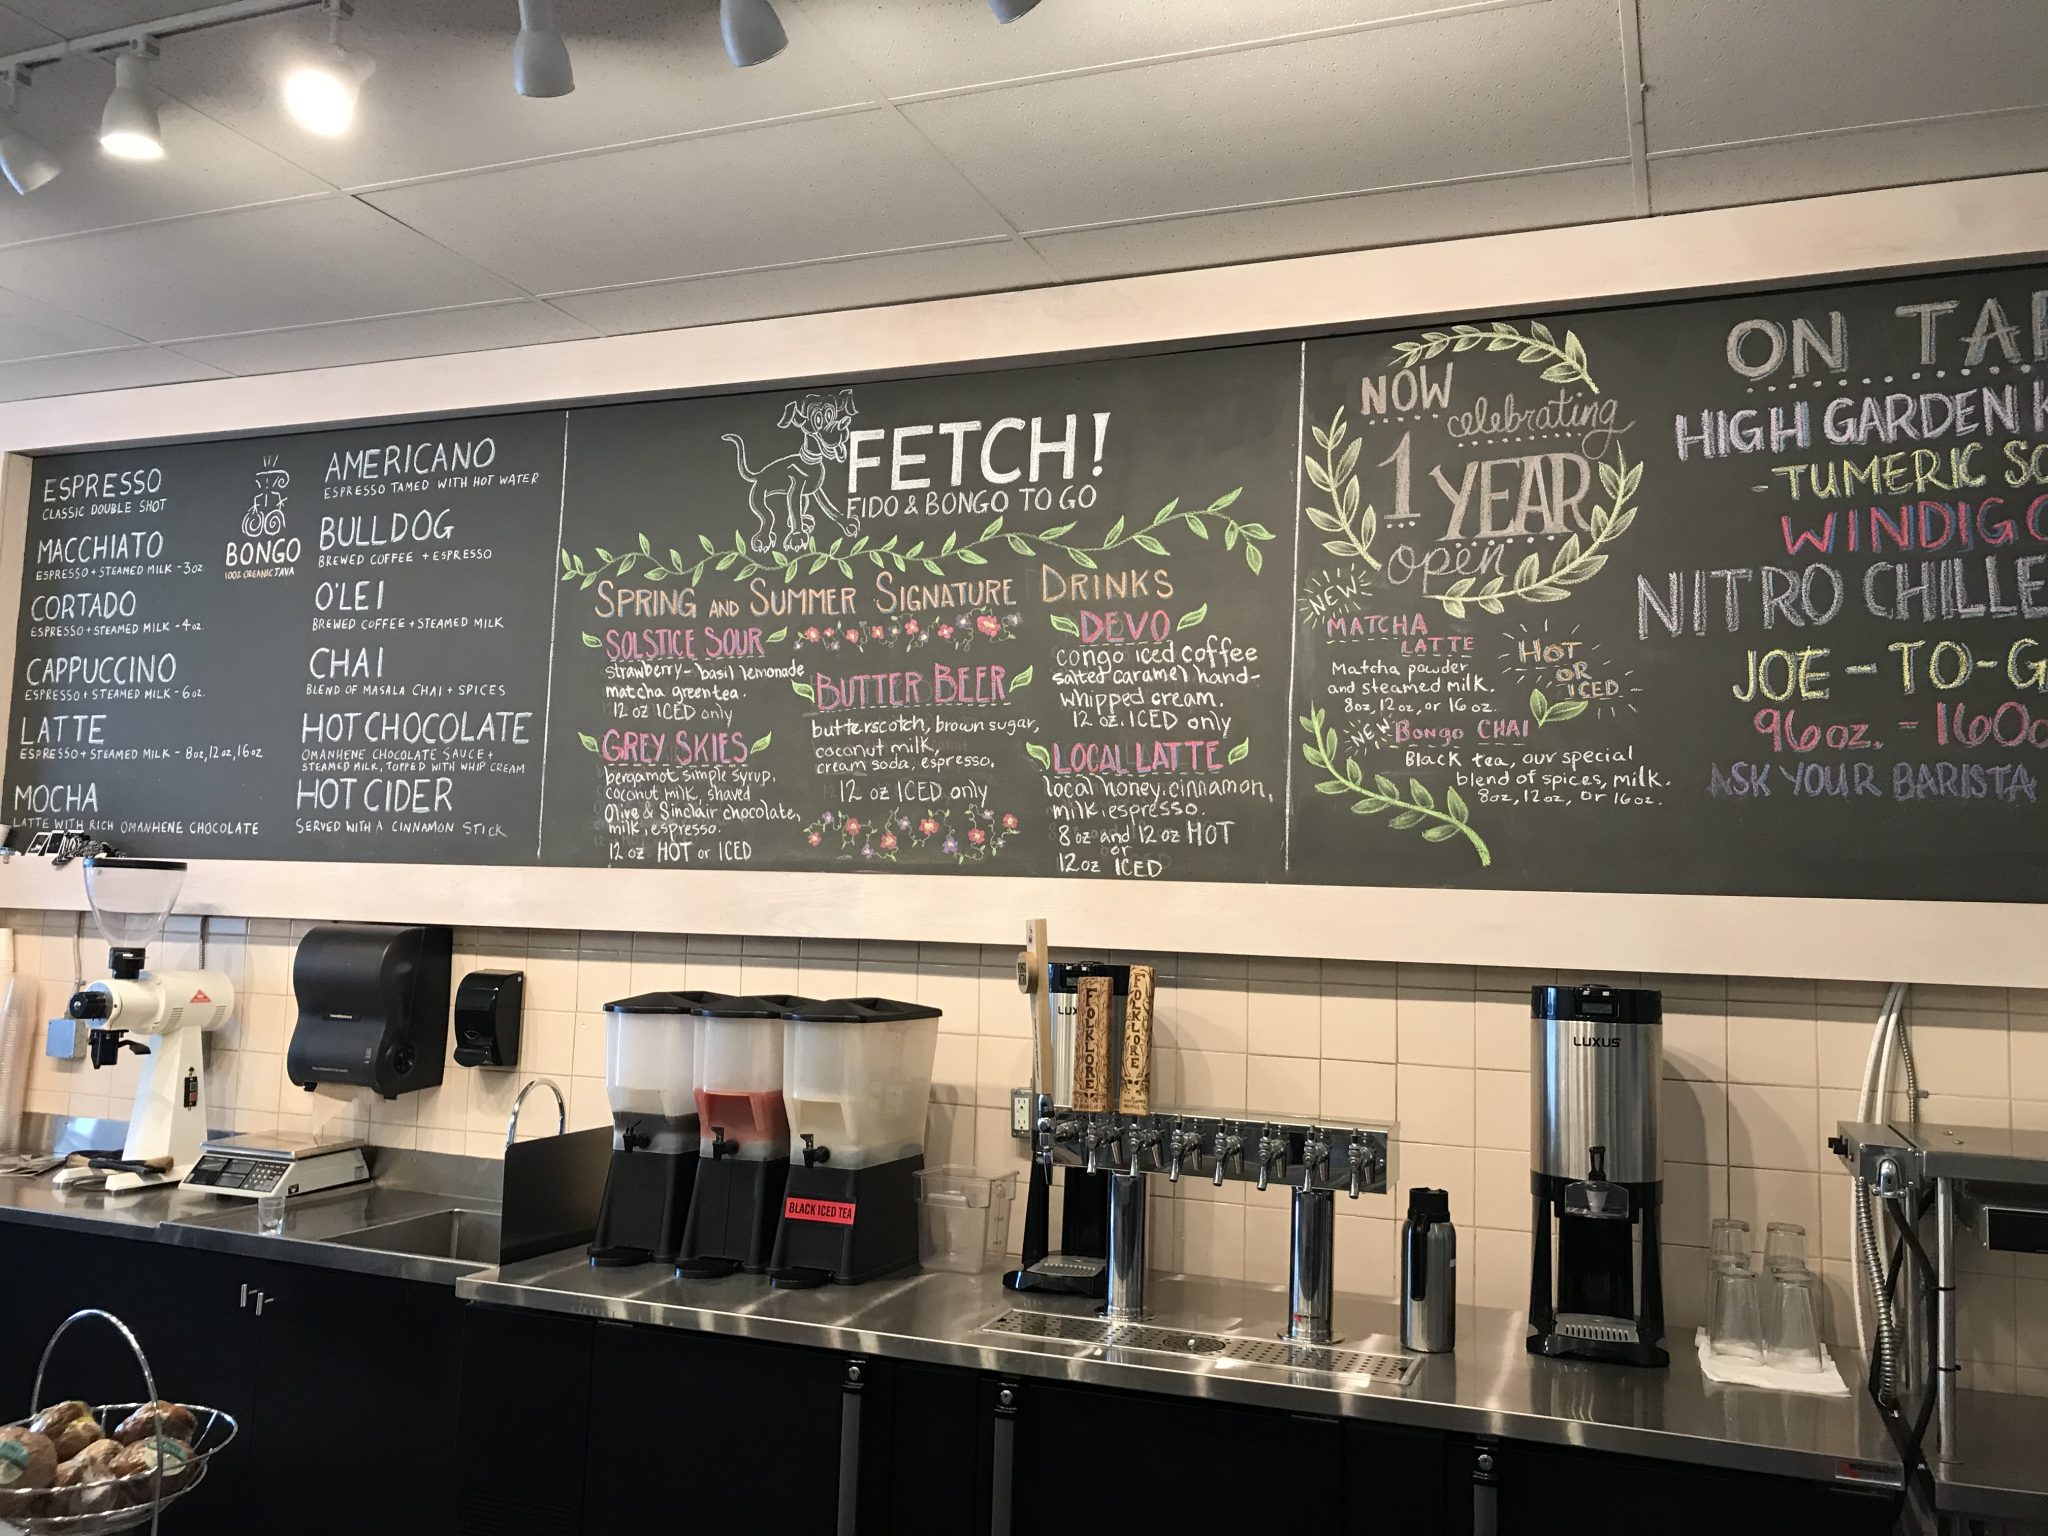 ESPRESSO
CLASSIC DOUBLE SHOT
MACCHIATO
ESPRESSO + STEAMED MILK - 3oz.
CORTADO
ESPRESSO + STEAMED MILK - 4oz.
CAPPUCCINO
ESPRESSO + STEAMED MILK - 6oz.
LATTE
ESPRESSO + STEAMED MILK - 8oz, 12oz, 16oz
MOCHA
LATTE WITH RICH OMANHENE CHOCOLATE
BONGO
100% ORGANIC JAVA
AMERICANO
ESPRESSO TAMED WITH HOT WATER
BULLDOG
BREWED COFFEE + ESPRESSO
O'LEI
BREWED COFFEE + STEAMED MILK
CHAI
BLEND OF MASALA CHAI + SPICES
HOT CHOCOLATE
OMANHENE CHOCOLATE SAUCE +
STEAMED MILK, TOPPED WITH WHIP CREAM
HOT CIDER
SERVED WITH A CINNAMON STICK
FETCH!
FIDO & BONGO TO GO
SPRING AND SUMMER SIGNATURE DRINKS
SOLSTICE SOUR
strawberry-basil lemonade
matcha green tea.
12 oz ICED only
GREY SKIES
bergamot simple syrup,
coconut milk, shaved
Olive & Sinclair chocolate,
milk, espresso.
12 oz HOT or ICED
BUTTER BEER
butterscotch, brown sugar,
coconut milk,
cream soda, espresso.
12 oz ICED only
DEVO
congo iced coffee
salted caramel hand-
whipped cream.
12 oz. ICED only
LOCAL LATTE
local honey, cinnamon,
milk, espresso.
8 oz and 12 oz HOT
or
12oz ICED
NOW
celebrating
1 YEAR
open
NEW
MATCHA
LATTE
Matcha powder
and steamed milk.
8oz, 12oz, or 16oz.
HOT
OR
ICED
NEW
Bongo CHAI
Black tea, our special
blend of spices, milk.
8oz, 12oz, or 16oz.
ON TAP
HIGH GARDEN K
-TUMERIC SO
WINDIGO
NITRO CHILLE
JOE-TO-G
96oz. = 160o
ASK YOUR BARISTA
LUX
FOLKLORE
FOLKLORE
LUXUS
BLACK ICED TEA